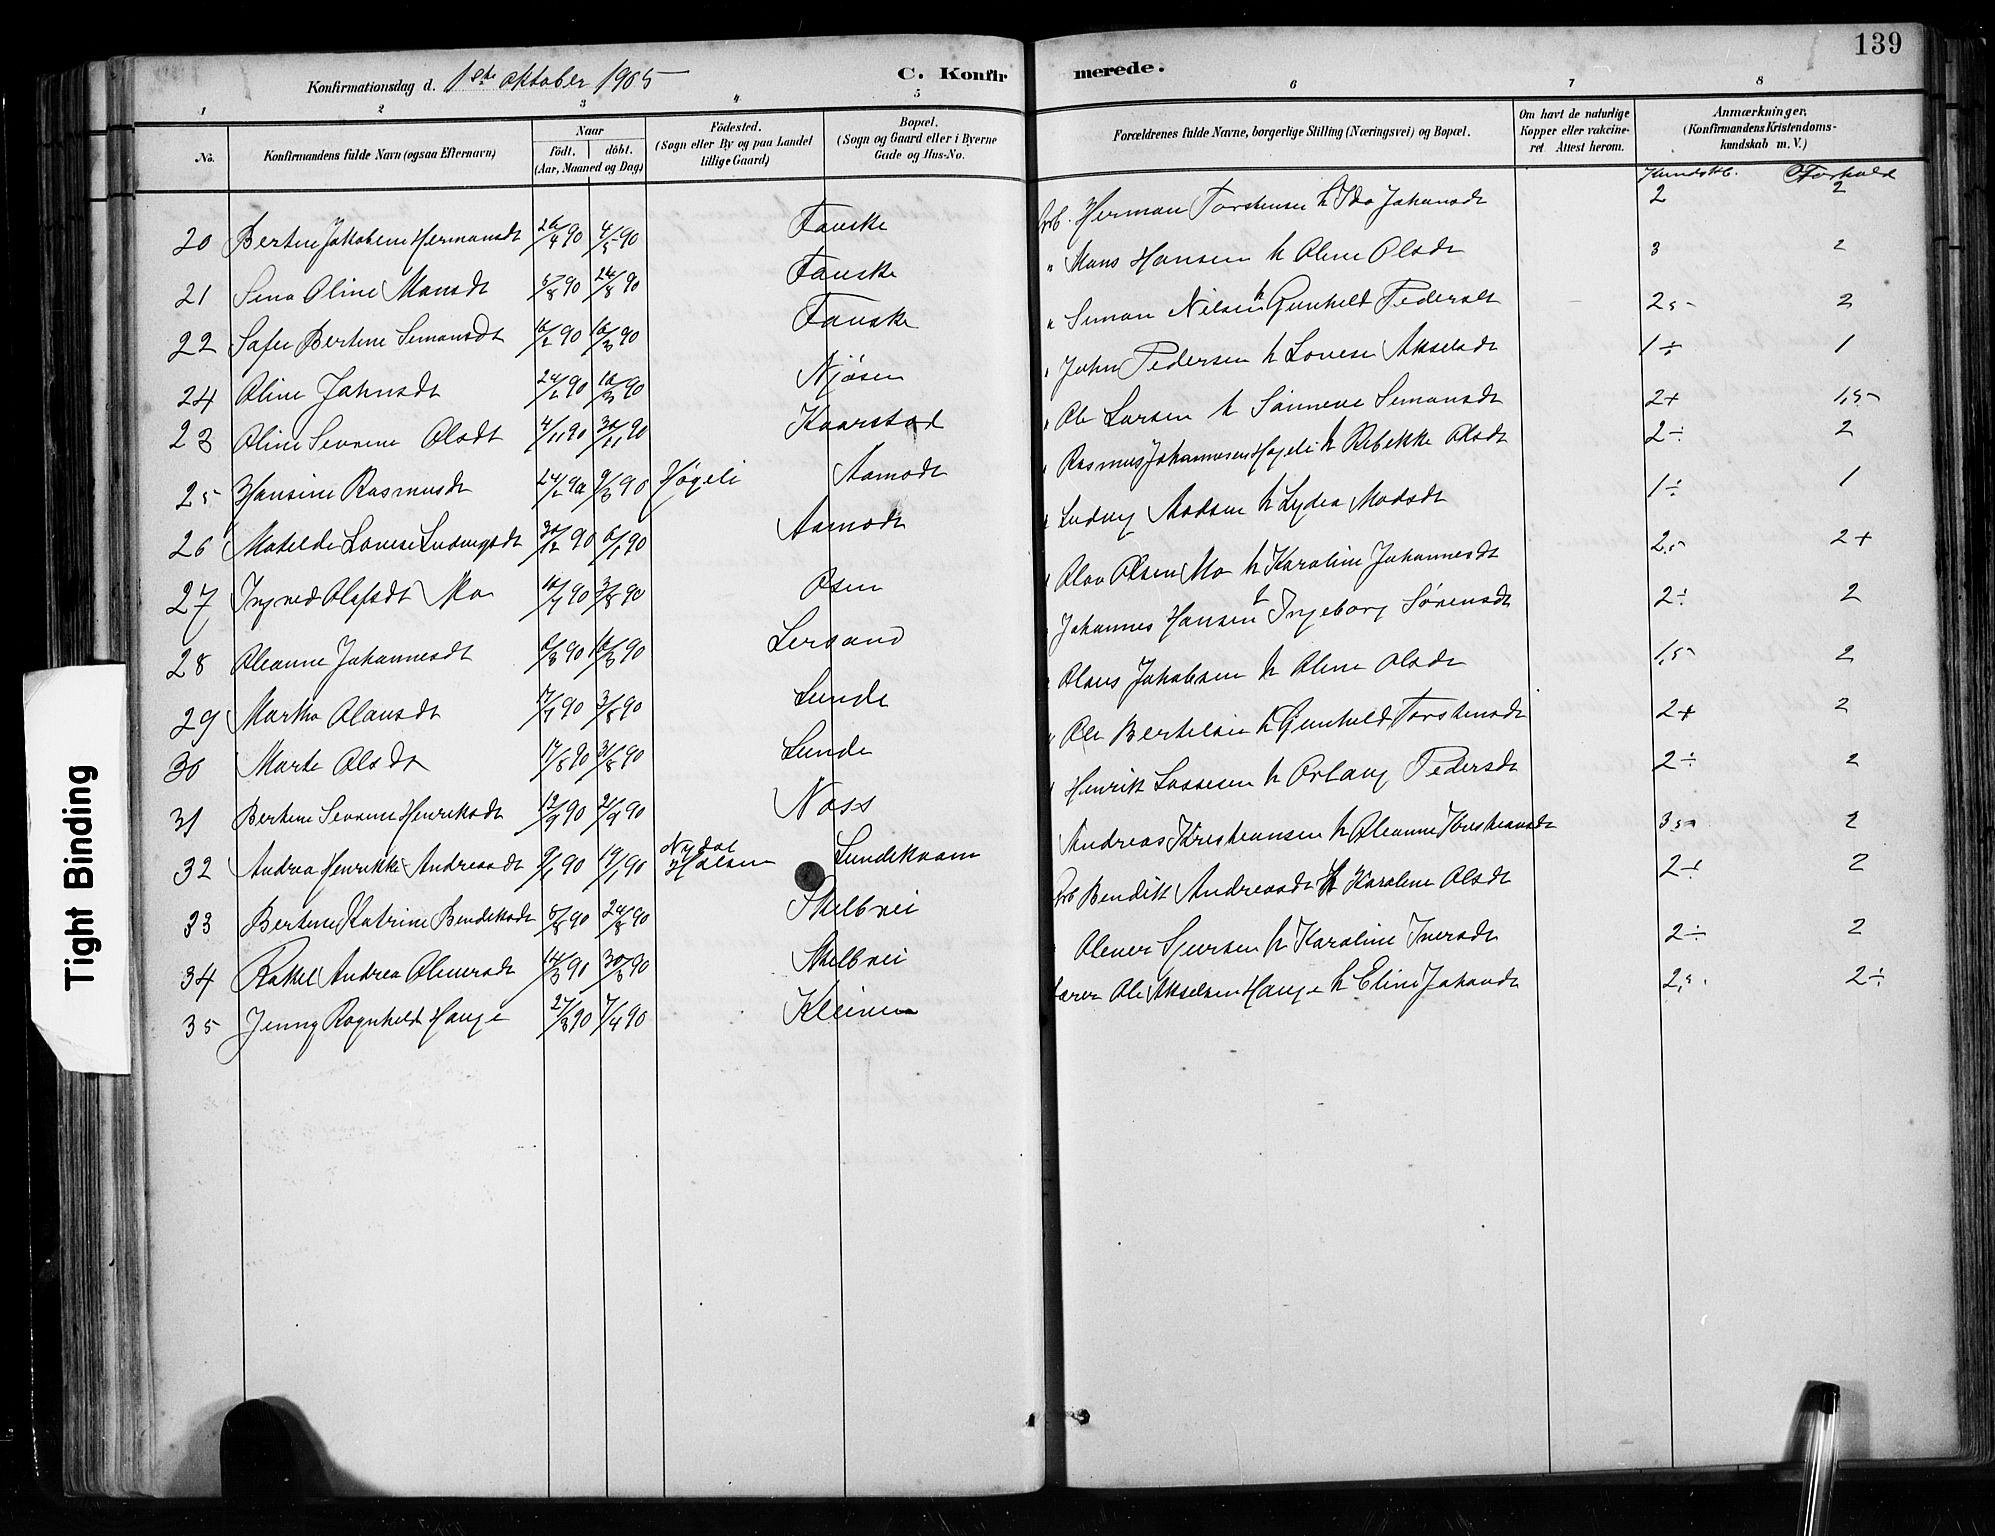 139
Konfirmationsdag d. 1ste oktober 1905
C. Konfirmerede.
1 2 3 4 5 6 7 8
No.
Konfirmandens fulde Navn (ogsaa Efternavn)
Naar
födt. döbt.
(Aar, Maaned og Dag)
Födested.
(Sogn eller By og paa Landet
tillige Gaard)
Bopæl.
(Sogn og Gaard eller i Byerne
Gade og Hus-No.
Forældrenes fulde Navne, borgerlige Stilling (Næringsvei) og Bopæl.
Om havt de naturlige
Kopper eller vakcine-
ret Attest herom.
Anmærkninger,
(Konfirmandens Kristendoms-
kundskab m. V.)
Kundsk. Forhold
20 Bertine Jakobine Hermansdt 26/4 90 4/5 90 Fauske Arb. Herman Torstensen h Ida Johansdt 2 2
21 Sena Oline Mansdt 5/8 90 24/8 90 Fauske " Mans Hansen h Oline Olsdt 3 2
22 Sofie Bertine Simonsdt 16/2 90 16/3 90 Fauske " Simon Nilsen h Gunhild Pedersdt 2,5 2
24 Oline Johnsdt 24/2 90 10/3 90 Njøsen " John Pedersen h Lovise Akselsdt 1÷ 1
23 Oline Severine Olsdt 4/11 90 30/11 90 Kaarstad " Ole Larsen h Sønneve Simonsdt 2+ 1,5
25 Hansine Rasmusdt 24/2 90 9/3 90 Høgeli Aamodt " Rasmus Johannesen Høgeli h Rebekke Olsdt 2÷ 2
26 Matilde Lovise Ludvigsdt 30/12 90 6/1 90 Aamodt " Ludvig Madsen h Lydia Madsdt 1÷ 1
27 Ingred Olafsdt Mo 10/7 90 3/8 90 Osen " Olav Olsen Mo h Karoline Johannesdt 2,5 2+
28 Oleanne Johannesdt 6/3 90 16/3 90 Lersand Johannes Hansen h Ingeborg Sørensdt 2÷ 2
29 Martha Olausdt 17/7 90 3/8 90 Lunde " Olaus Jakobsen h Oline Olsdt 1,5 2
30 Marte Olsdt 17/8 90 31/8 90 Lunde " Ole Bertelsen h Gunhild Torstensdt 2+ 2
31 Bertine Severine Henriksdt 12/9 90 21/9 90 Nass " Henrik Lassesen h Orlaug Pedersdt 2÷ 2
32 Andrea Henrikke Andreasdt 9/1 90 19/1 90 Nydal Holsen Lundekvam Andreas Kristiansen h Oleanne Kristiansdt 3,5 2
33 Bertine Katrine Bendiksdt 5/8 90 24/8 90 Skelbrei Arb Bendikt Andreasdt h Karoline Olsdt 2÷ 2
34 Rakel Andrea Olinersdt 14/3 90 30/3 90 Skelbrei Oliner Sjursen h Karoline Iversdt 2÷ 2
35 Jenny Ragnhild Hauge 27/3 90 7/4 90 Kleiven Lærer Ole Akselsen Hauge h Eline Johansdt 2,5 2÷
Tight Binding